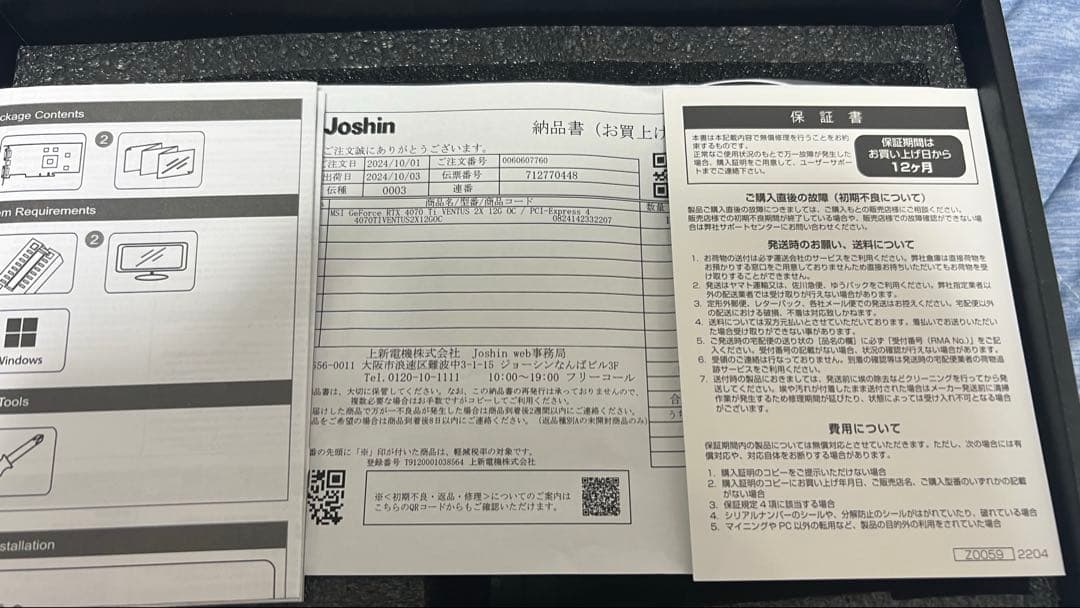 ckage Contents
2
em Requirements
2
Windows
Tools
stallation
Joshin
納品書（お買上げ
ご注文誠にありがとうございます。
ご注文日 2024/10/01 ご注文番号 0060607760
出荷日 2024/10/03 伝票番号 712770448
伝種 0003 連番
商品名/型番/商品コード
数量
MSI GeForce RTX 4070 Ti VENTUS 2X 12G OC / PCI-Express 4
4070TIVENTUS2X12GOC 0824142332207
上新電機株式会社 Joshin web事務局
556-0011 大阪市浪速区難波中3-1-15 ジョーシンなんばビル3F
Tel.0120-10-1111 10:00～19:00 フリーコール
品書は、大切に保管してください。なお、この納品書の再発行は承っておりませんので、
複数必要な場合はお手数ですがコピーしてご利用ください。
届けした商品で万が一不良品が発生した場合は商品到着後2週間以内にご連絡ください。
品をご希望の場合は商品到着後8日以内にご連絡ください。（返品種別Aの未開封商品のみ）
合
うち
番の先頭に「※」印が付いた商品は、軽減税率の対象です。
登録番号 T9120001038564 上新電機株式会社
※＜初期不良・返品・修理＞についてのご案内は
こちらのQRコードからもご確認いただけます。
保証書
本書は本記載内容で無償修理を行うことをお約
束するものです。
正常なご使用状況のもとで万一故障が発生した
場合、購入証明をご用意して、ユーザーサポー
トまでご連絡下さい。
保証期間は
お買い上げ日から
12ヶ月
ご購入直後の故障（初期不良について）
製品ご購入直後の故障につきましては、ご購入もとの販売店様にご相談ください。
販売店様での初期不良期間が終了している場合や、販売店様での故障確認ができない場
合は弊社サポートセンターにお問い合わせください。
発送時のお願い、送料について
1. お荷物の送付は必ず運送会社のサービスをご利用ください。弊社倉庫は直接荷物を
お預かりする窓口をご用意しておりませんため直接お持ちいただいてもお荷物を受
け取りすることができません。
2. 発送はヤマト運輸又は、佐川急便、ゆうパックをご利用ください。弊社指定業者以
外の配送業者では受け取りが行えない場合があります。
3. 定形外郵便、レターパック、各社メール便での発送はお控えください。宅配便以外
の配送における破損、不着は対応致しかねます。
4. 送料については双方元払いとさせていただいております。着払いでお送りいただい
た場合受け取りができない事があります。
5. ご発送時の宅配便の送り状の「品名の欄」に必ず「受付番号（RMA No.）」をご記
入ください。受付番号の記載がない場合、状況の確認が行えない場合があります。
6. 受領のご連絡は行なっておりません。到着の確認等は発送時の宅配業者の荷物追
跡サービスをご利用ください。
7. 送付時の製品におきましては、発送前に埃の除去などクリーニングを行ってから発
送してください。埃や汚れが付着したまま送付された場合はメーカー発送前に清掃
作業が発生するため修理期間が延びたり、状態によっては受け入れ不可となる場合
がございます。
費用について
保証期間内の製品については無償対応とさせていただきます。ただし、次の場合には有
償対応や、対応自体をお断りする場合があります。
1. 購入証明のコピーをご提示いただけない場合
2. 購入証明のコピーにお買い上げ年月日、ご販売店名、ご購入型番のいずれかの記載
がない場合
3. 保証規定4項に該当する場合
4. シリアルナンバーのシールや、分解防止のシールがはがれていたり、破れている場合
5. マイニングやPC以外の転用など、製品の目的外の利用をされていた場合
Z0059 2204